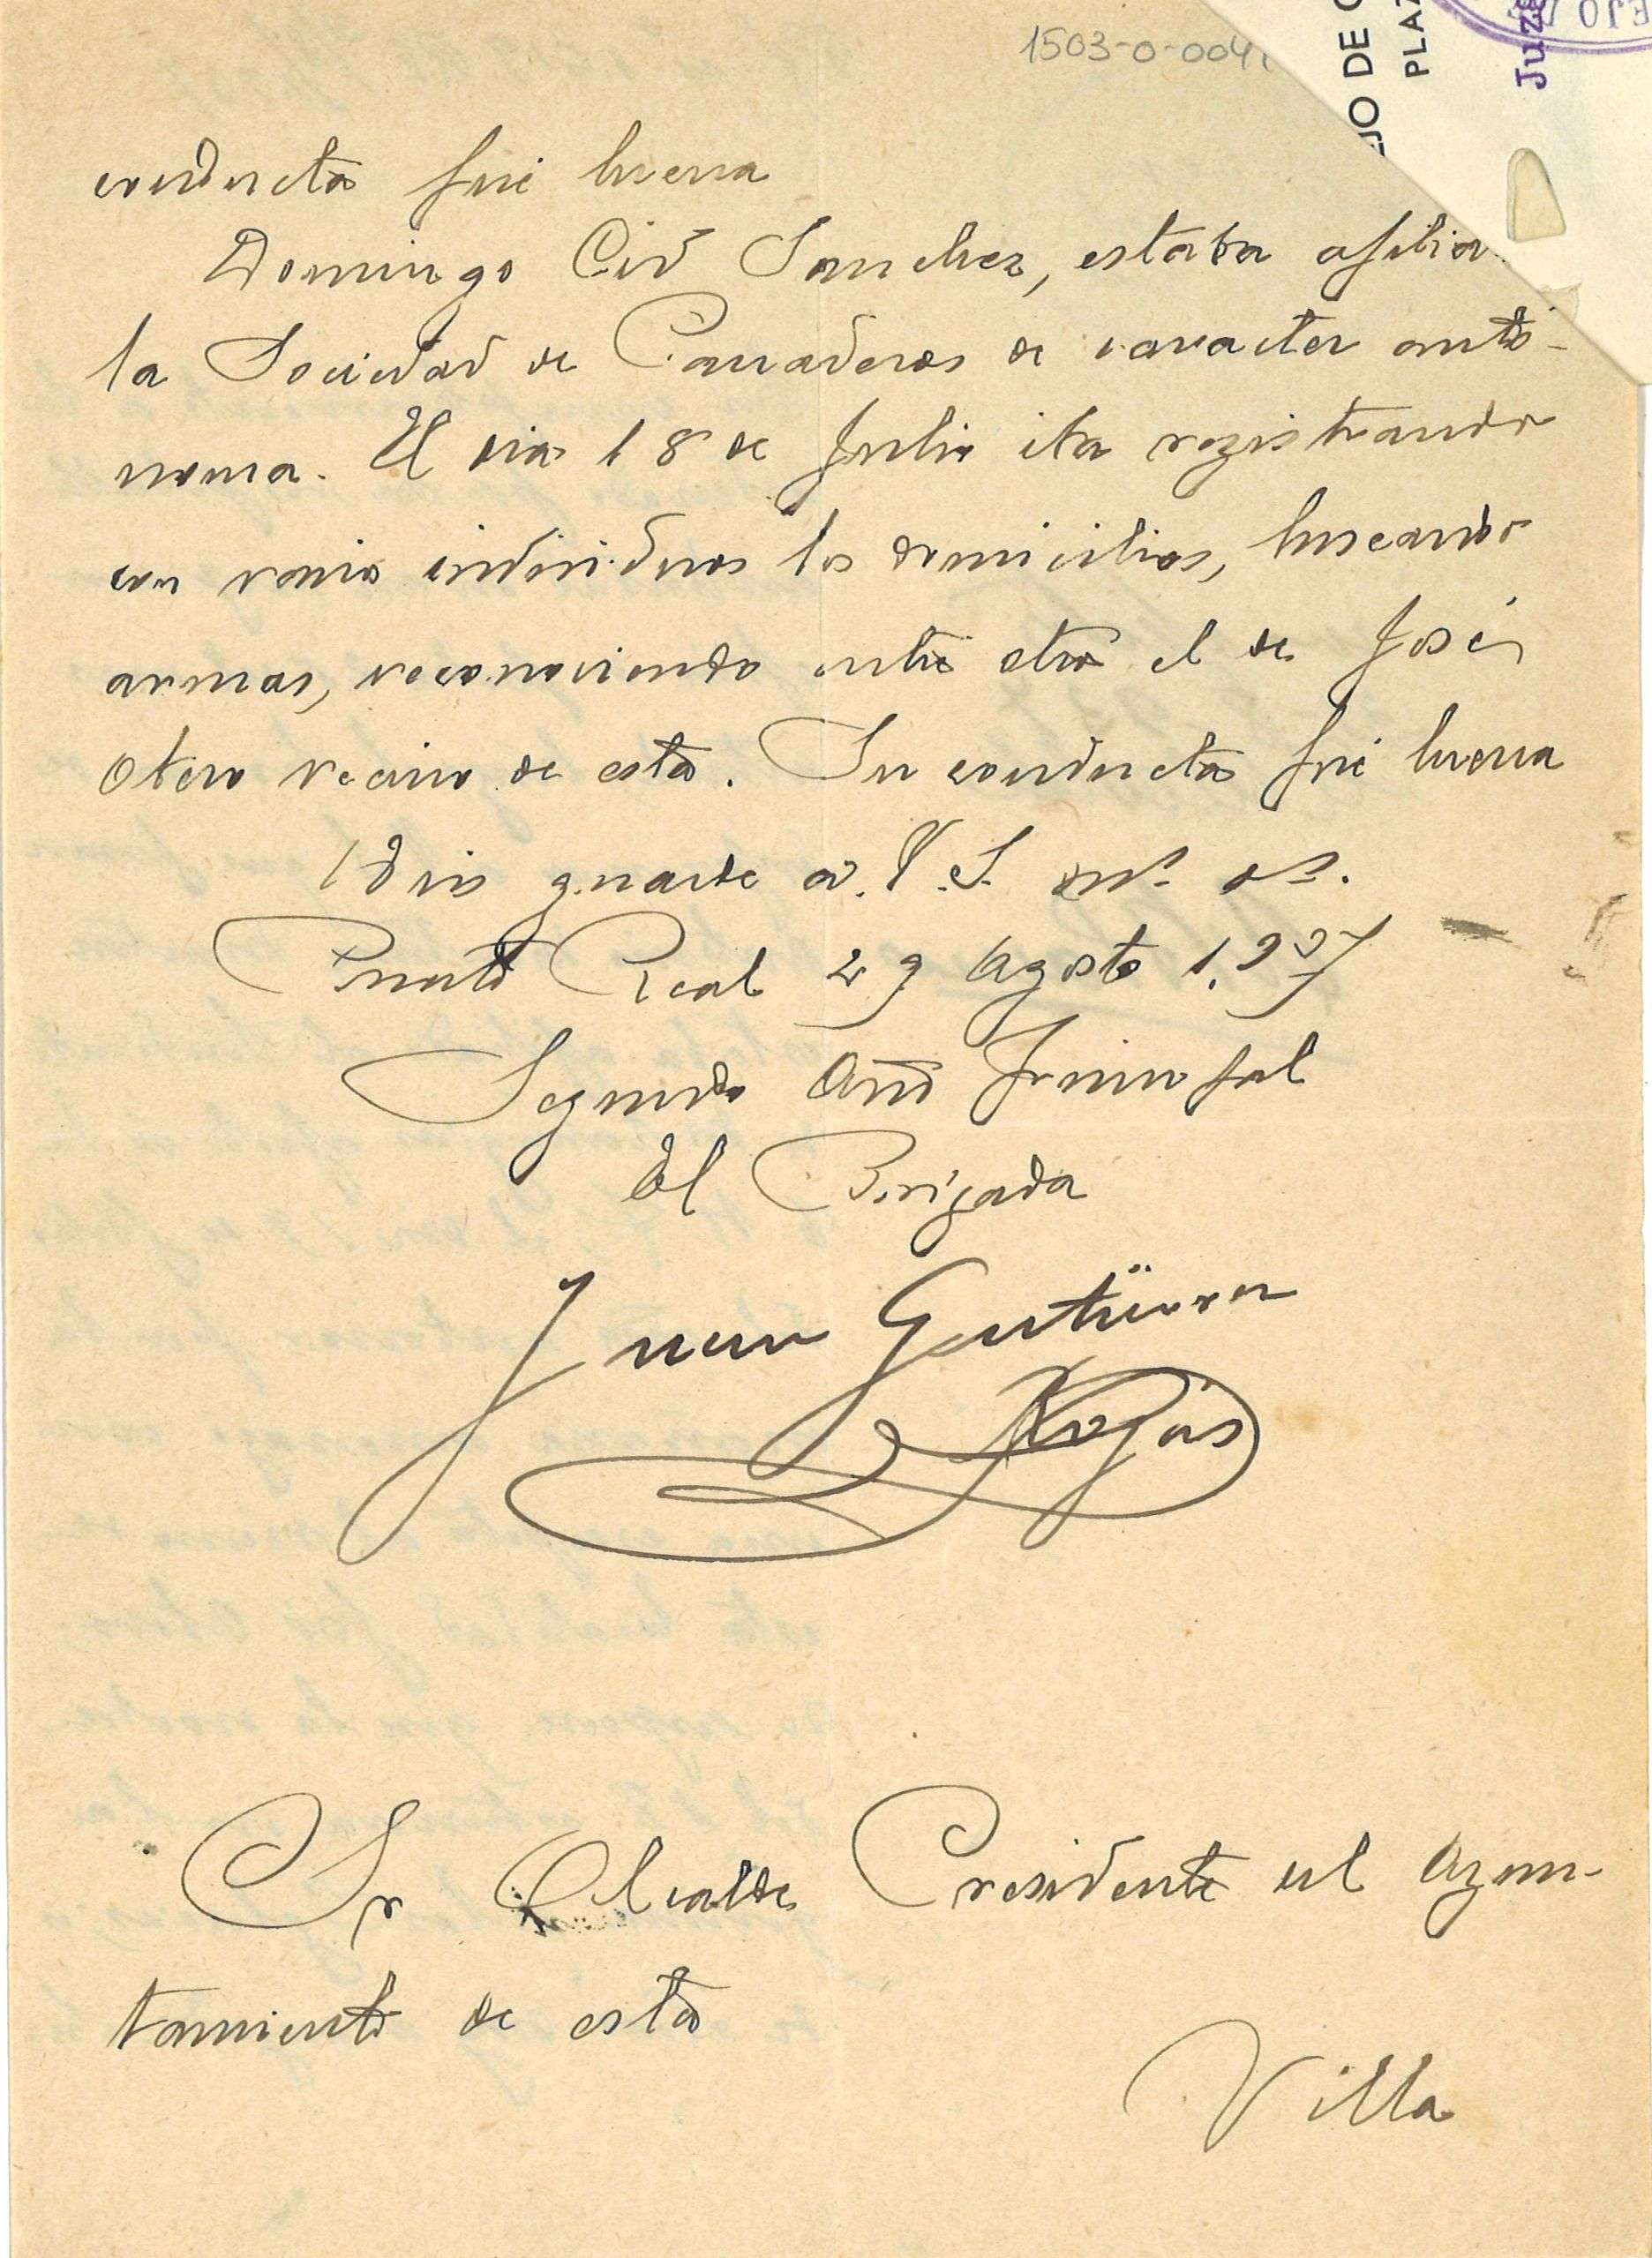 1503-0-004
JO DE C
PLAZ
Juz
EJO D
conducta fué buena
Domingo Cid Sanchez, estaba afilia
la Sociedad de Panaderos de caracter autó-
noma. El dia 18 de Julio iba registrando
con varios individuos los domicilios, buscando
armas, reconociendo entre otros el de José
Otero vecino de esta. Su conducta fué buena
Dios guarde a V.S. ms. as.
Puerto Real 29 Agosto 1.937
Segundo Año Triunfal
El Brigada
Juan Gutiierrez
Rojas
Sr Alcalde Presidente del Ayun-
tamiento de esta
Villa